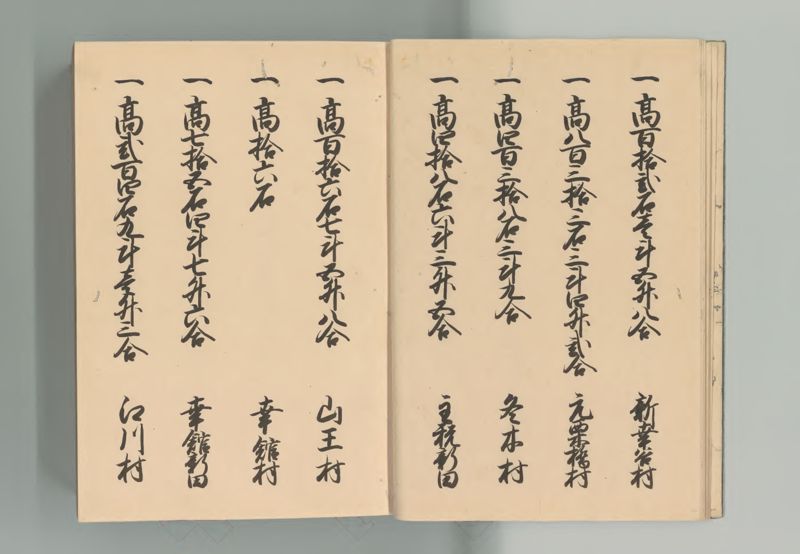 一高百拾弐石壱斗五升八合 新幸谷村
一高八百三拾三石三斗四升弐合 元栗橋村
一高四百三拾八石三斗九合 冬木村
一高四拾八石六斗三升五合 主税新田
一高百拾六石七斗五升八合 山王村
一高拾六石 幸舘村
一高七拾五石四斗七升六合 幸舘新田
一高弐百四石九斗壱升三合 江川村